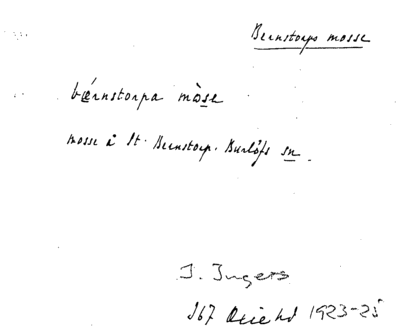 Bernstorps mosse
bǽrnstorpa mòse
mosse å St. Bernstorp. Burlöfs sn.
I. Ingers
1923-25